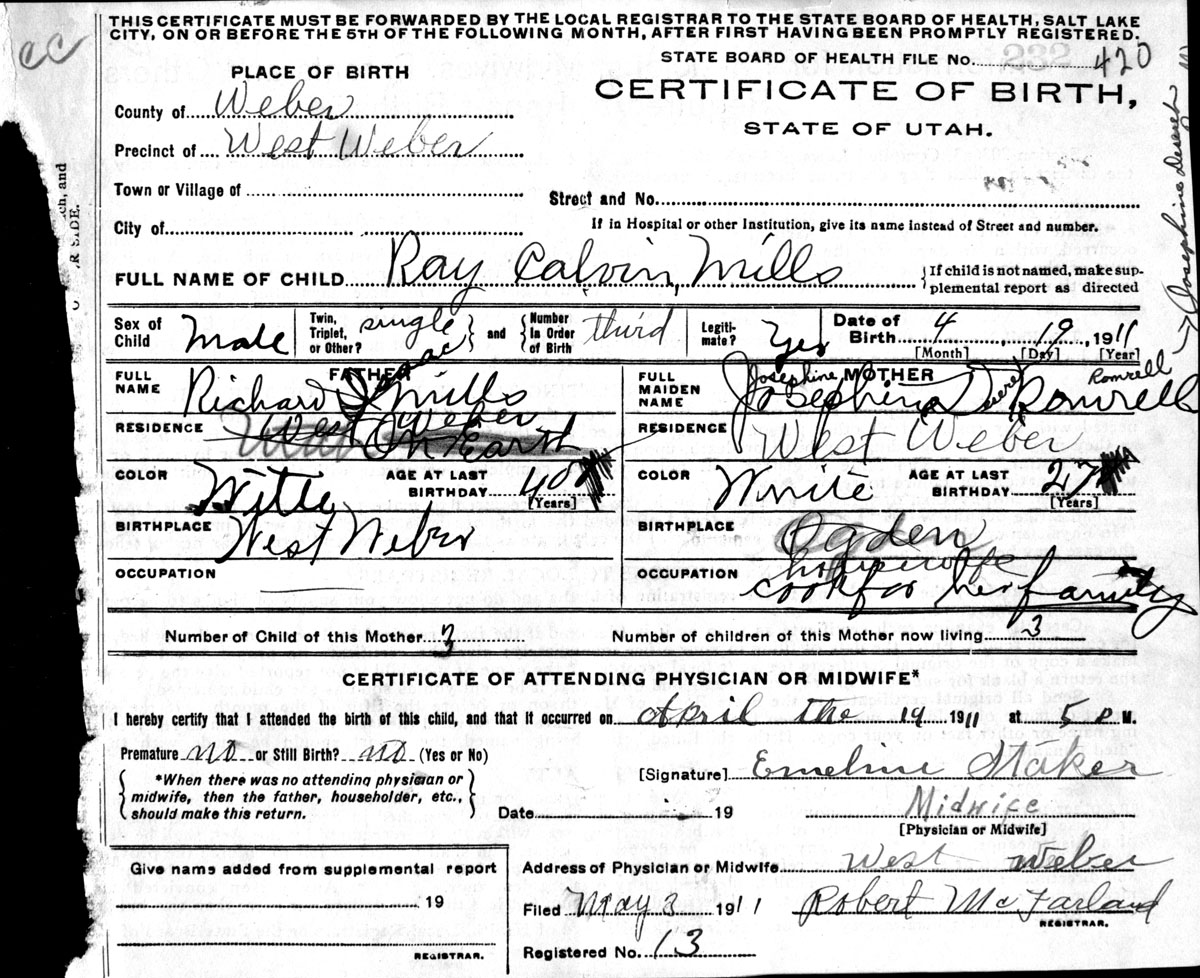 THIS CERTIFICATE MUST BE FORWARDED BY THE LOCAL REGISTRAR TO THE STATE BOARD OF HEALTH, SALT LAKE
CITY, ON OR BEFORE THE 5TH OF THE FOLLOWING MONTH, AFTER FIRST HAVING BEEN PROMPTLY REGISTERED.
CC
STATE BOARD OF HEALTH FILE No. 232 420
PLACE OF BIRTH
CERTIFICATE OF BIRTH,
STATE OF UTAH.
County of Weber
Precinct of West Weber
Town or Village of
Street and No.
City of
If in Hospital or other Institution, give its name instead of Street and number.
FULL NAME OF CHILD Ray Calvin, Mills
{If child is not named, make sup-
plemental report as directed
Josephine Deseret
ch, and
R SIDE.
Sex of Child Male
Twin, Triplet, or Other? single and Number In Order of Birth third
Legiti- mate? Yes
Date of Birth 4 19 1911
[Month] [Day] [Year]
FATHER
FULL NAME Richard Isaac Mills
RESIDENCE West Weber
On Earth
COLOR Witte
AGE AT LAST BIRTHDAY 40 [Years]
BIRTHPLACE West Weber
OCCUPATION
MOTHER
FULL MAIDEN NAME Josephine Romrell
Josephine Deseret Romrell
RESIDENCE West Weber
COLOR White
AGE AT LAST BIRTHDAY 27 [Years]
BIRTHPLACE Ogden
OCCUPATION housewife
cook for her family
Number of Child of this Mother 3
Number of children of this Mother now living 3
CERTIFICATE OF ATTENDING PHYSICIAN OR MIDWIFE*
I hereby certify that I attended the birth of this child, and that it occurred on April the 19 1911 at 5 P M.
Premature no or Still Birth? no (Yes or No)
*When there was no attending physician or
midwife, then the father, householder, etc.,
should make this return.
[Signature] Emeline Staker
Date 19
Midwife
[Physician or Midwife]
Give name added from supplemental report
19
REGISTRAR.
Address of Physician or Midwife West Weber
Filed May 3 1911 Robert McFarland
REGISTRAR.
Registered No. 13